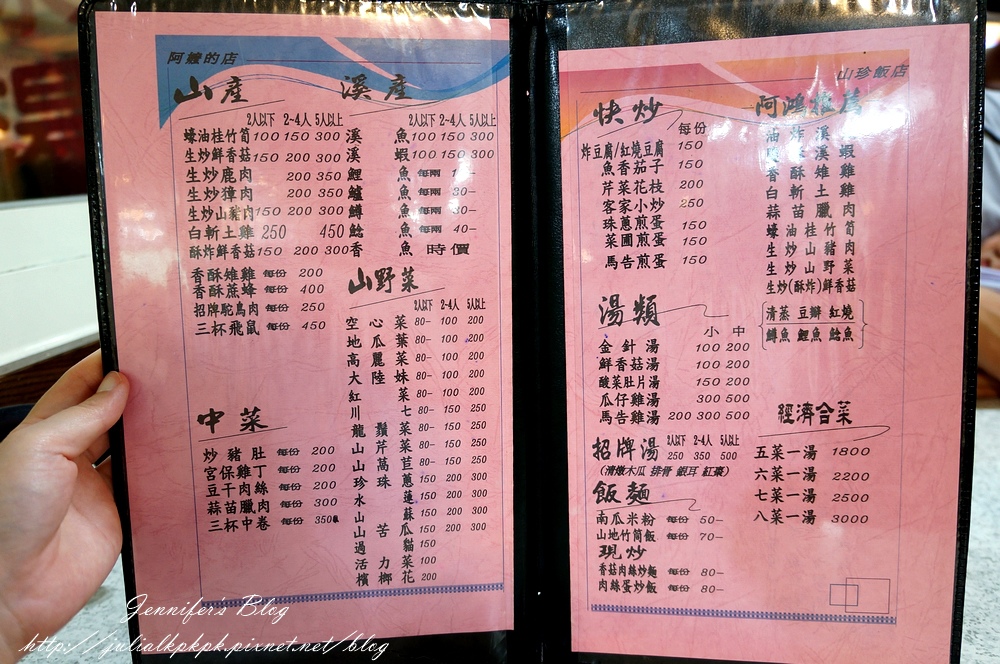 阿嬤的店
山產
2人以下 2-4人 5人以上
蠔油桂竹筍 100 150 300
生炒鮮香菇 150 200 300
生炒鹿肉 200 350
生炒獐肉 200 350
生炒山豬肉 150 200 300
白斬土雞 250 450
酥炸鮮香菇 150 200 300
香酥雉雞 每份 200
香酥蔗蜂 每份 400
招牌駝鳥肉 每份 250
三杯飛鼠 每份 450
中菜
炒豬肚 每份 200
宮保雞丁 每份 200
豆干肉絲 每份 200
蒜苗臘肉 每份 300
三杯中卷 每份 350
溪產
2人以下 2-4人 5人以上
溪魚 100 150 300
溪蝦 100 150 300
鯉魚 每兩
鱸魚 每兩 30-
鱒魚 每兩 30-
鯰魚 每兩 40-
香魚 時價
山野菜
2人以下 2-4人 5人以上
空心菜 80- 100 200
地瓜葉 80- 100 200
高麗菜 80- 100 200
大陸妹 80- 100 200
紅菜 80- 100 200
川七 80- 150 250
龍鬚菜 80- 150 250
山芹菜 80- 150 250
山萵苣 80- 150 250
珍珠蔥 150 200 300
水蓮 150 200 300
山蘇 150 200 300
山苦瓜 150 200 300
過貓 150
活力菜 100
檳榔花 200
山珍飯店
快炒
每份
炸豆腐/紅燒豆腐 150
魚香茄子 150
芹菜花枝 200
客家小炒 250
珠蔥煎蛋 150
菜圃煎蛋 150
馬告煎蛋 150
湯類
小 中
金針湯 100 200
鮮香菇湯 100 200
酸菜肚片湯 150 200
瓜仔雞湯 300 500
馬告雞湯 200 300 500
招牌湯 2人以下 2-4人 5人以上
250 350 500
(清燉木瓜 排骨 銀耳 紅棗)
飯麵
南瓜米粉 每份 50-
山地竹筒飯 每份 70-
現炒
香菇肉絲炒麵 每份 80-
肉絲蛋炒飯 每份 80-
阿鴻推薦
油炸溪
溪蝦
香酥雉雞
白斬土雞
蒜苗臘肉
蠔油桂竹筍
生炒山豬肉
生炒山野菜
生炒(酥炸)鮮香菇
清蒸 豆瓣 紅燒
鱒魚 鯉魚 鯰魚
經濟合菜
五菜一湯 1800
六菜一湯 2200
七菜一湯 2500
八菜一湯 3000
Jennifer's Blog
http://julialkpkpk.pixnet.net/blog